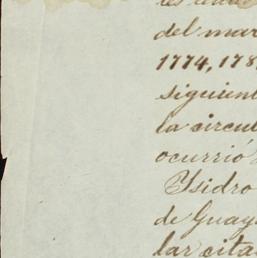 del mar
1774, 178
siguient
la circul
ocurrió
Isidro
de Guay
lar cita